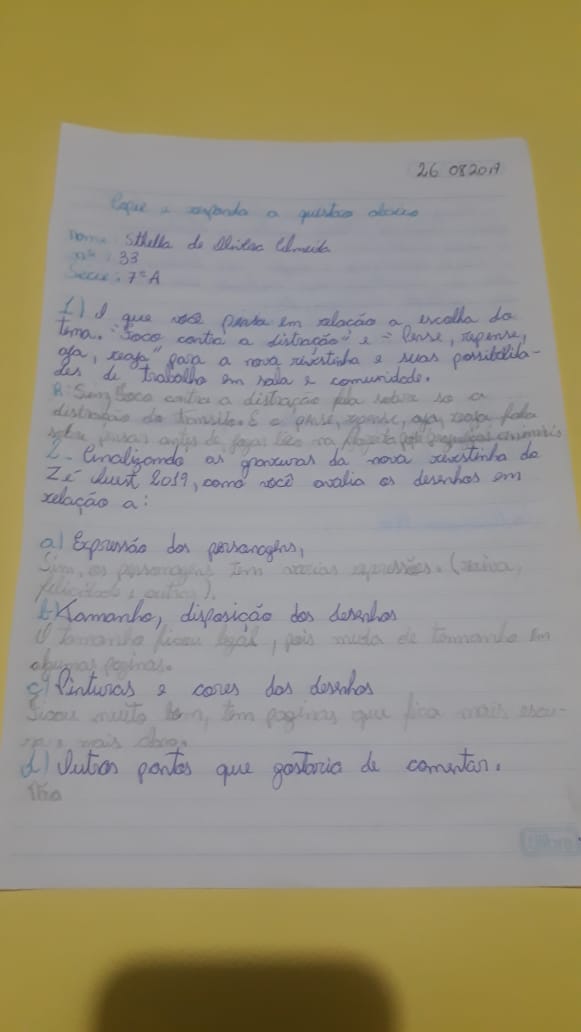 26 08 2019
Copie e responda a questão abaixo
Nome: Sthella de Almeida
nº: 33
Série: 7º A
1) O que você pensa em relação a escolha do
tema. "Foco contra a distração" e "Pense, repense,
aja, reaja" para a nova revistinha e suas possibilida-
des de trabalho em sala e comunidade.
R: Sim, Foco contra a distração fala sobre so a
distração do transito. E o pense, repense, aja, reaja fala
sobre pensar antes de fazer
2- Analizando as gravuras da nova revistinha do
Zé 2019, como você avalia os desenhos em
relação a:
a) Expressão dos personagens,
Sim, os personagens tem varias expressões. (raiva,
felicidade e outras).
b- Tamanho, disposição dos desenhos
O tamanho ficou legal, pois muda de tamanho em
algumas paginas.
c) Pinturas e cores dos desenhos
Ficou muito bom, tem paginas que fica mais escu-
ro e mais claro.
d) Outros pontos que gostaria de comentar.
Não